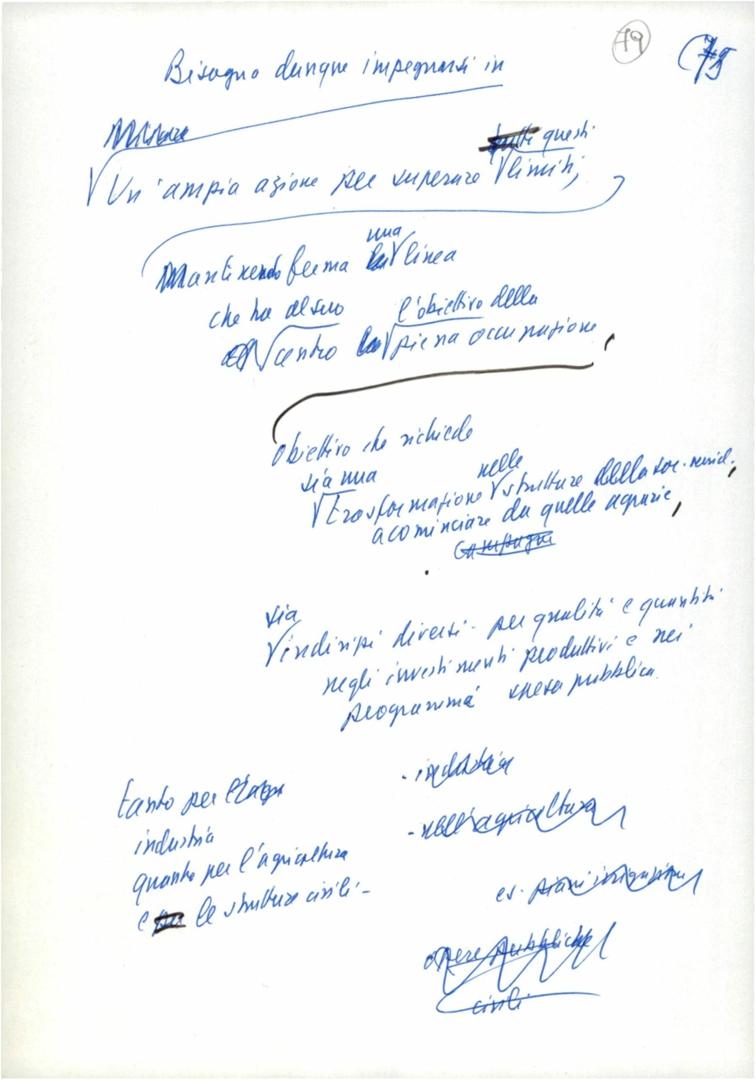 79
Bisogno dunque impegnarsi in
questi
Un'ampia azione per superare limiti,
una
Mantenendo ferma linea
che ha al suo l'obiettivo della
centro piena occupazione,
Obiettivo che richiede
sia una nelle
trasformazione strutture della soc. merid.,
a cominciare da quelle agrarie,
campagne
sia
indirizzi diversi per qualità e quantità
negli investimenti produttivi e nei
programmi spesa pubblica.
- industria
tanto per
- nell'agricoltura
industria
quanto per l'agricoltura
es. piani irrigazione
e le strutture civili -
opere pubbliche
civili